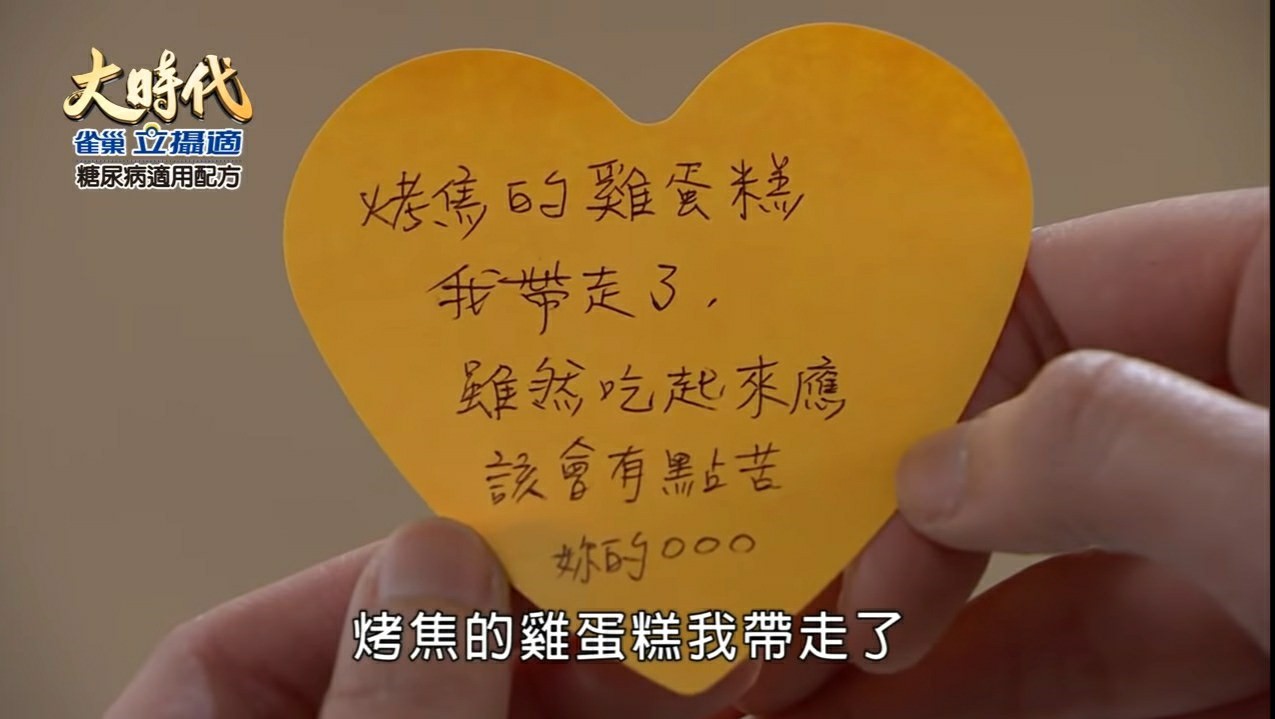 大時代
雀巢 立攝適
糖尿病適用配方
烤焦的雞蛋糕
我帶走了,
雖然吃起來應
該會有點苦
妳的○○○
烤焦的雞蛋糕我帶走了